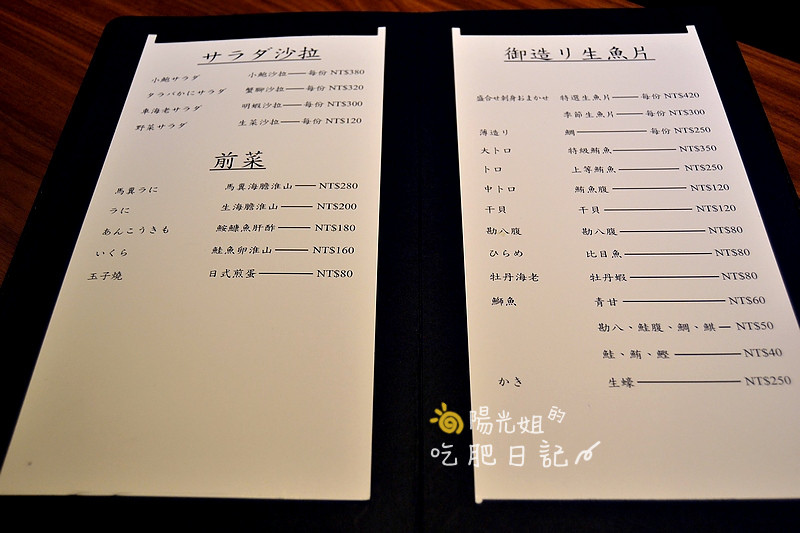 サラダ沙拉
小鮑サラダ 小鮑沙拉——每份 NT$380
タラバかにサラダ 蟹腳沙拉——每份 NT$320
車海老サラダ 明蝦沙拉——每份 NT$300
野菜サラダ 生菜沙拉——每份 NT$120
前菜
馬糞うに 馬糞海膽淮山——NT$280
うに 生海膽淮山——NT$200
あんこうきも 鮟鱇魚肝酢——NT$180
いくら 鮭魚卵淮山——NT$160
玉子燒 日式煎蛋——NT$80
御造リ生魚片
盛合せ刺身おまかせ 特選生魚片——每份 NT$420
季節生魚片——每份 NT$300
薄造リ 鯛——每份 NT$250
大トロ 特級鮪魚——NT$350
トロ 上等鮪魚——NT$250
中トロ 鮪魚腹——NT$120
干貝 干貝——NT$120
勘八腹 勘八腹——NT$80
ひらめ 比目魚——NT$80
牡丹海老 牡丹蝦——NT$80
鰤魚 青甘——NT$60
勘八、鮭腹、鯛、鯕—NT$50
鮭、鮪、鰹——NT$40
かき 生蠔——NT$250
陽光姐的
吃肥日記